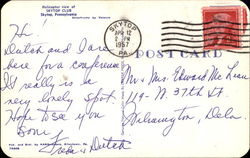 Helicopter view of
SKYTOP CLUB
Skytop, Pennsylvania
SKYTOP
APR 12
2 PM
1957
PA.
POSTCARD
Hi.
Dutch and I are
here for a conference
It really is a
very lovely spot.
Hope to see you
soon.
Dutch
Mr. Mrs. Edward Mc Lean
119- N. 37th St.
Wilmington, Del.